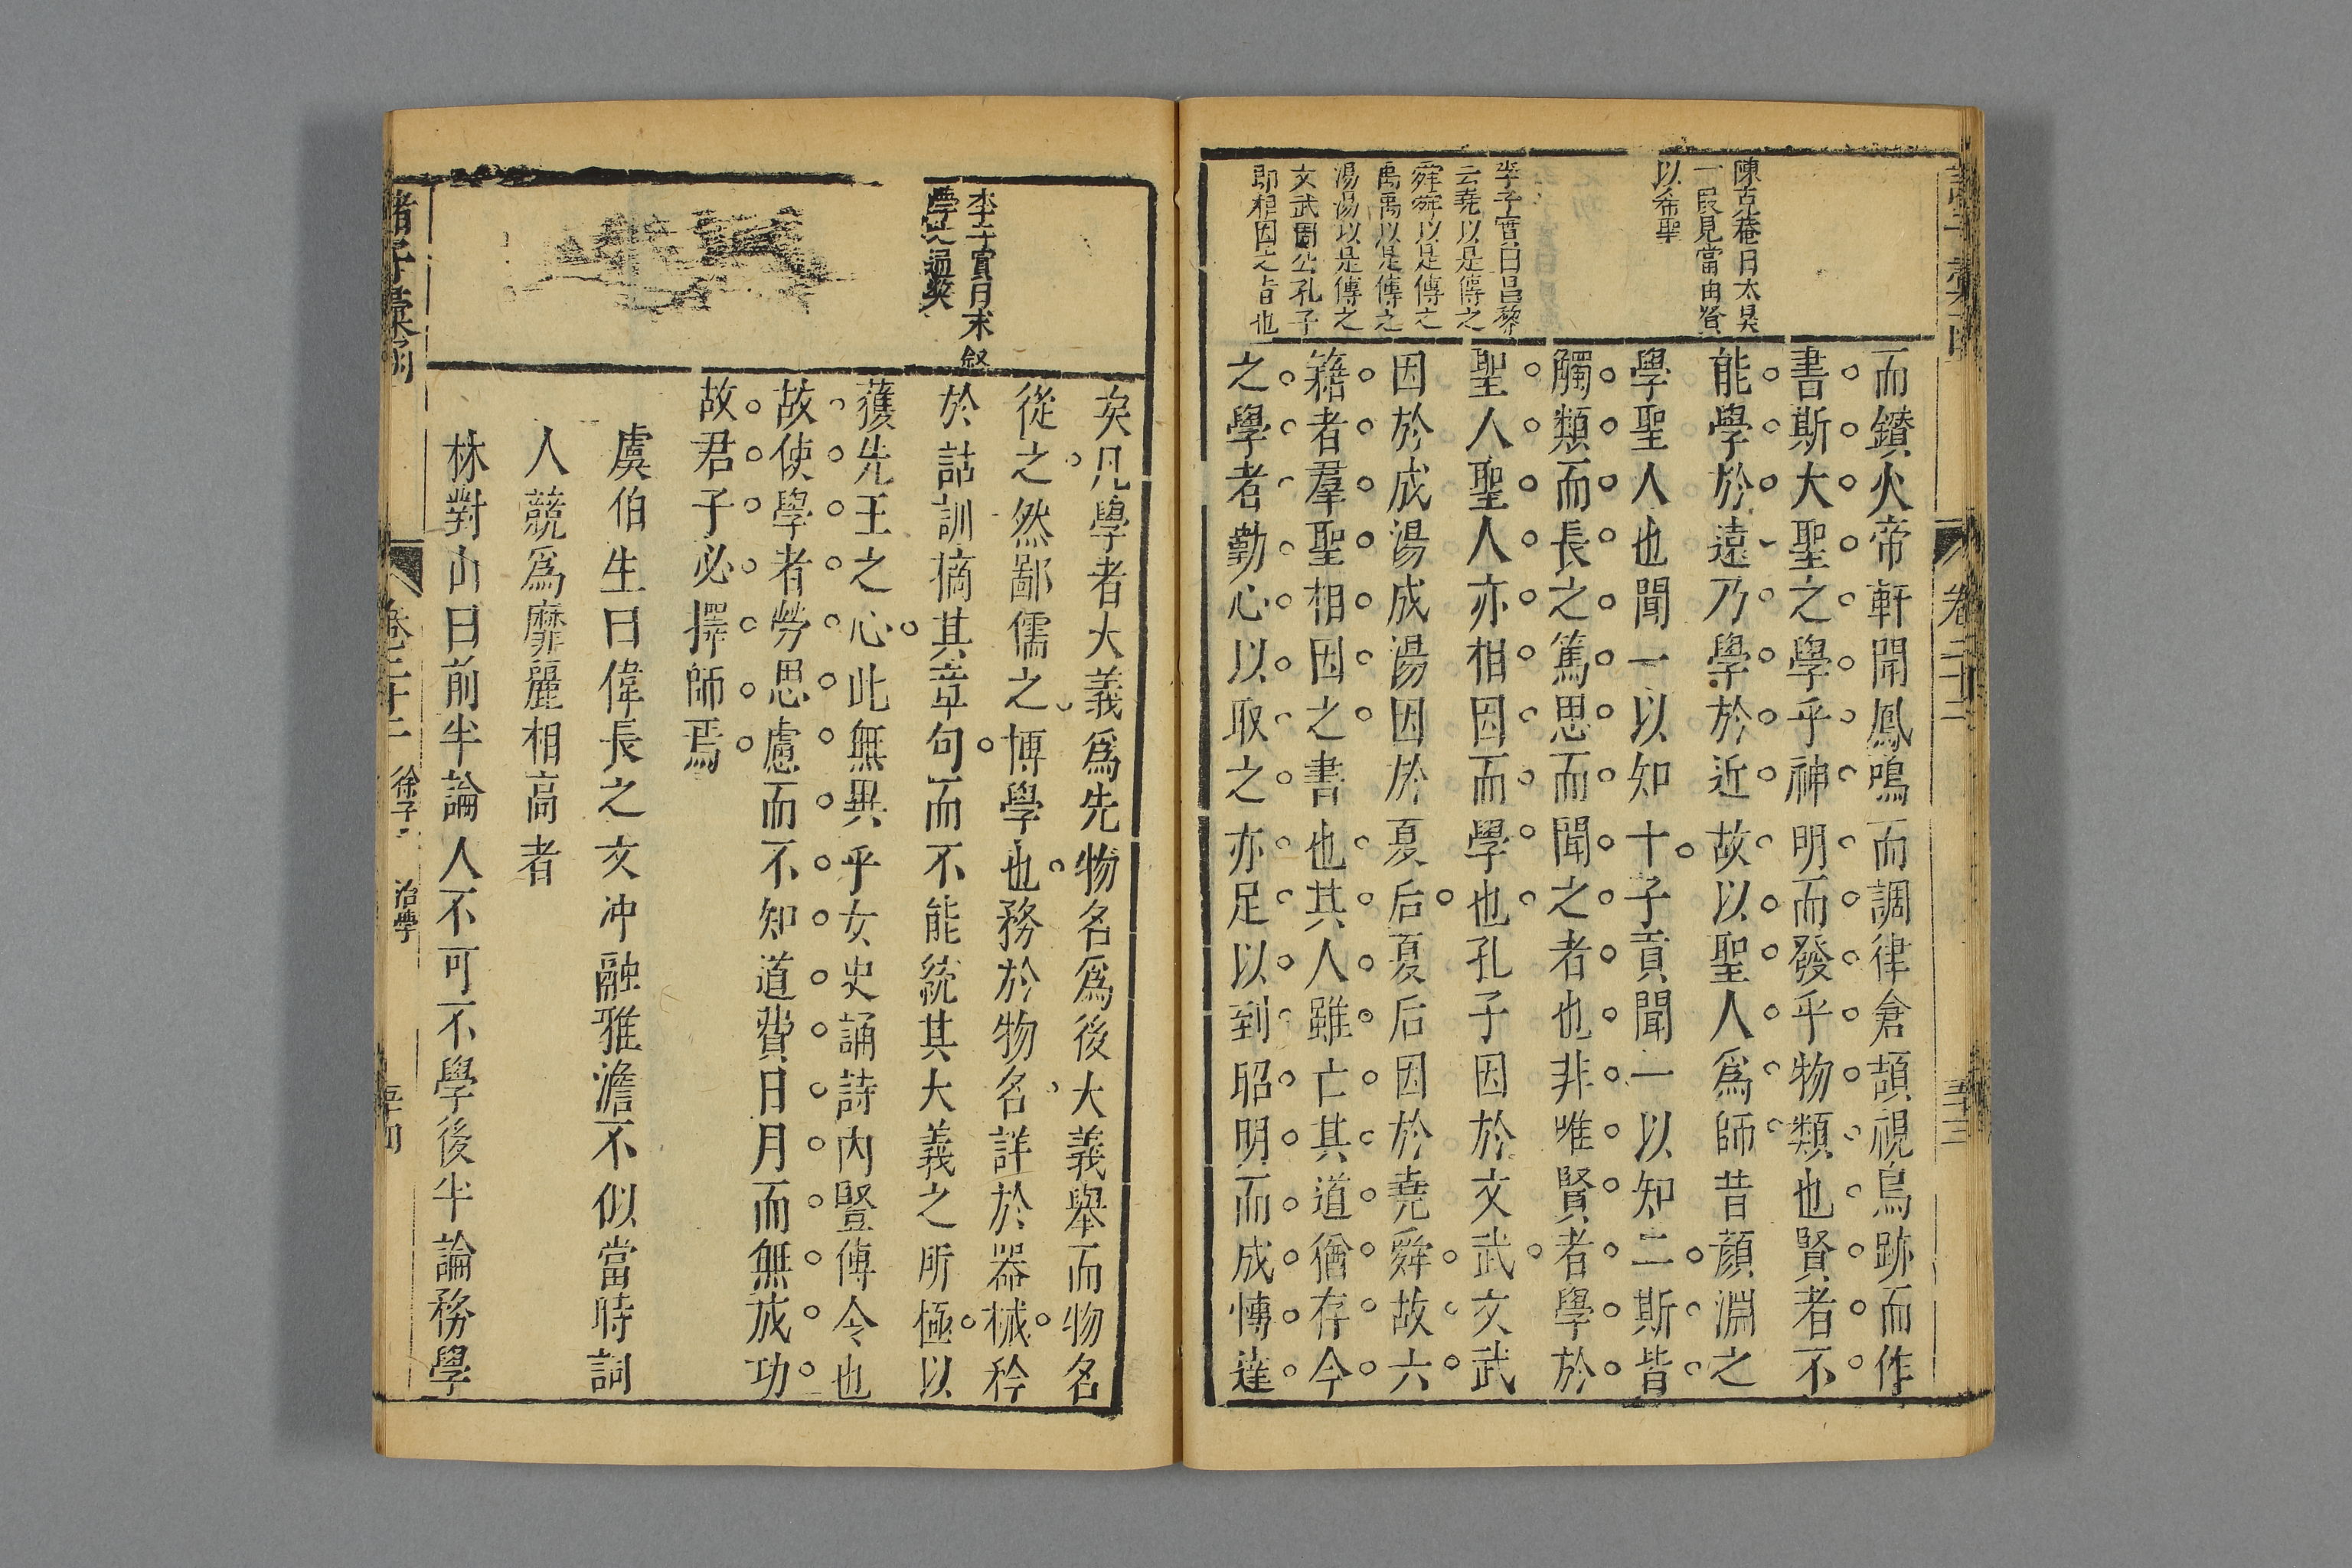 陳古菴曰太昊
一叚見當由賢
以希聖
李子實曰昌黎
云堯以是傳之
舜舜以是傳之
禹禹以是傳之
湯湯以是傳之
文武周公孔子
即相因之旨也
而鑚火帝軒聞鳳鳴而調律倉頡視鳥跡而作
書斯大聖之學乎神明而發乎物類也賢者不
能學於遠乃學於近故以聖人爲師昔顔淵之
學聖人也聞一以知十子貢聞一以知二斯皆
觸類而長之篤思而聞之者也非唯賢者學於
聖人聖人亦相因而學也孔子因於文武文武
因於成湯成湯因於夏后夏后因於堯舜故六
籍者羣聖相因之書也其人雖亡其道猶存今
之學者勤心以取之亦足以到昭明而成愽達
卷二十二
五十三
李子實曰末叙
矣凡學者大義爲先物名爲後大義舉而物名
從之然鄙儒之博學也務於物名詳於器械矜
於詁訓摘其章句而不能統其大義之所極以
獲先王之心此無異乎女史誦詩內豎傳令也
故使學者勞思慮而不知道費日月而無成功
故君子必擇師焉
虞伯生曰偉長之文冲融雅澹不似當時詞
人競爲靡麗相高者
林對山曰前半論人不可不學後半論務學
諸子彙函
卷二十二
徐子
治學
五十四